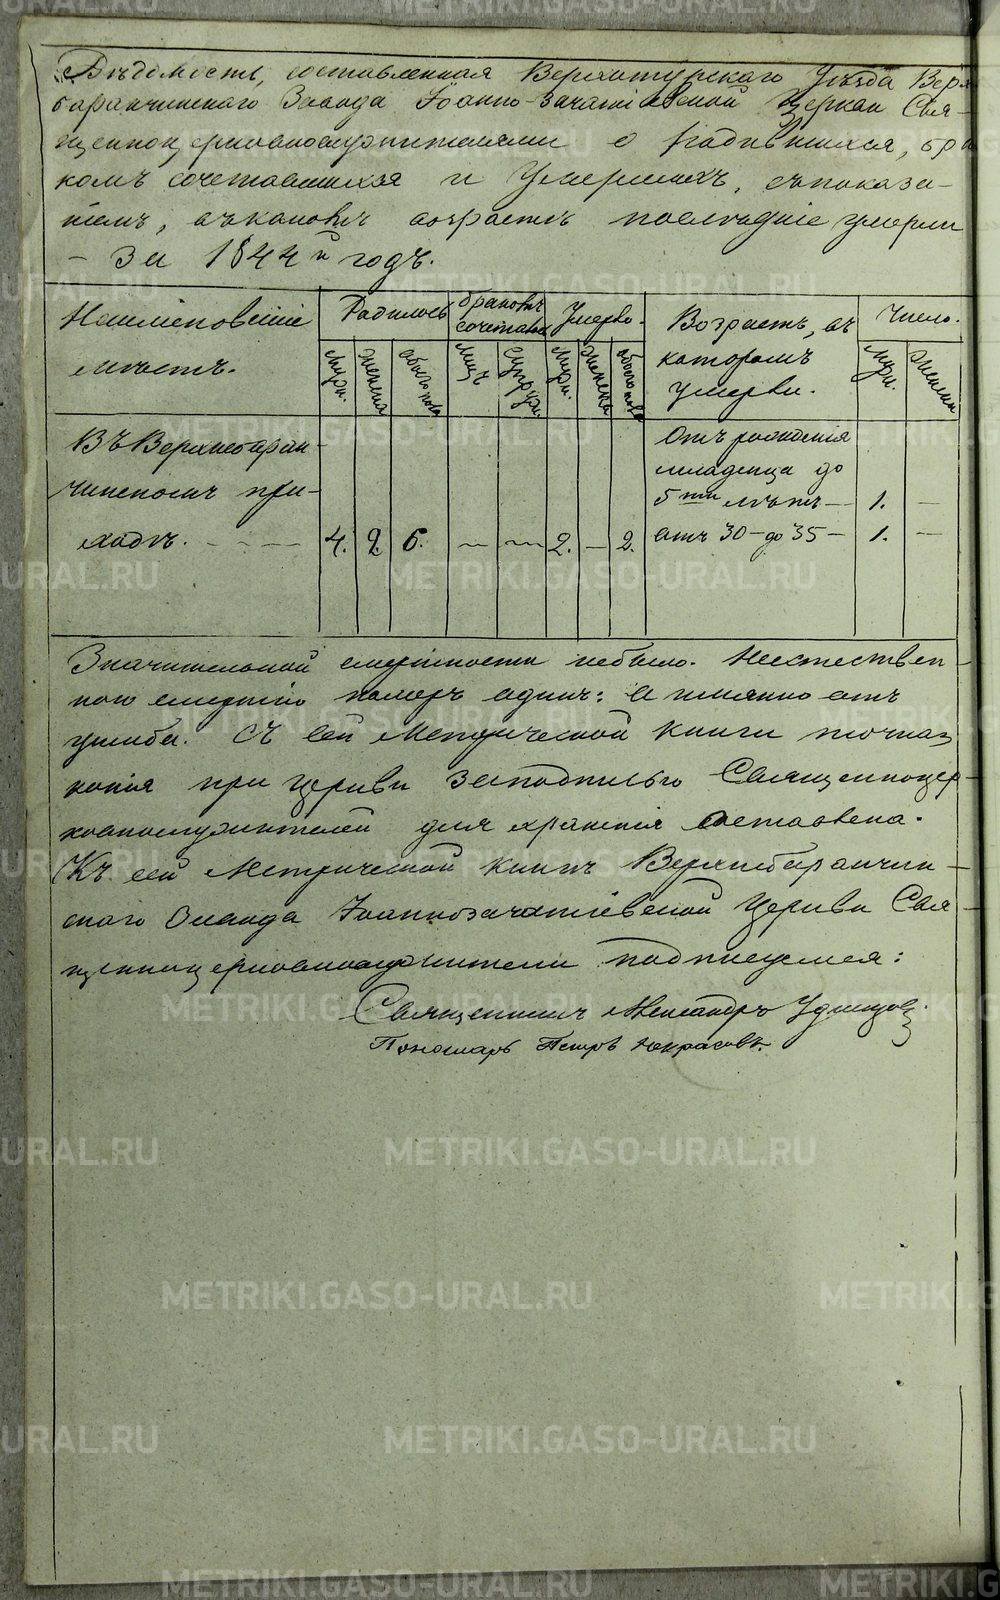 Ведомость, составленная Верхотурскаго Уезда Верх
баранчинскаго Завода Iоанно-Зачатiевской Церкви Свя-
щенноцерковнослужителями о родившихся, бра
комъ сочетавшихся и Умершихъ, съ показа-
нiемъ, въ каковыхъ возрастахъ последнiе умерли
- За 1844й годъ.
Наименованiе местъ. Родилось браковъ сочетавш. Умерло. Возрастъ, въ которомъ умерли. Число.
Муж. Женска обоего пола лицъ супруж. Муж. Женска обоего пола Муж. Женска
Въ Верхнебаран-
чинскомъ при-
ходе. - - - 4. 2. 6. — — 2. — 2.
Отъ рожденiя
младенца до
5ти летъ — 1. —
отъ 30 - до 35 — 1. —
Значительной смертности небыло. Неестествен-
ною смертiю померъ одинъ: а именно отъ
ушиба. Съ сей Метрической Книги точная
копiя при Церкви заподписью Священноцер-
ковнослужителей для храненiя оставлена.
Къ сей Метрической Книге Верхнебаранчин-
скаго Завода Iоаннозачатiевской Церкви Свя-
щенноцерковнослужители подписуемся:
Священникъ Александръ Удинцов
Пономарь Петръ Некрасовъ.
METRIKI.GASO-URAL.RU